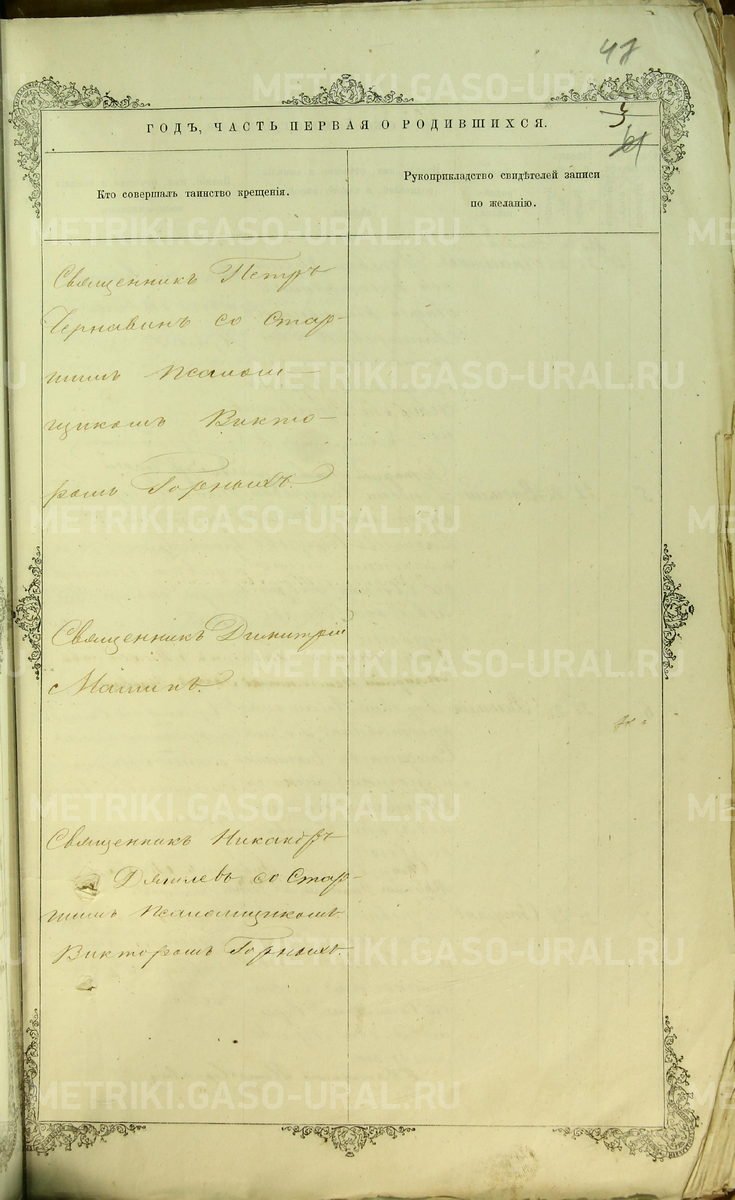 48
3
61
ГОДЪ, ЧАСТЬ ПЕРВАЯ О РОДИВШИХСЯ.
Кто совершалъ таинство крещенія.
Рукоприкладство свидѣтелей записи
по желанію.
Священникъ Петръ
Чернавинъ со Стар-
шимъ Псалом-
щикомъ Викто-
ромъ Горныхъ.
Священникъ Димитрій
Машинъ.
Священникъ Никандръ
Дягилевъ со Стар-
шимъ Псаломщикомъ
Викторомъ Горныхъ.
METRIKI.GASO-URAL.RU